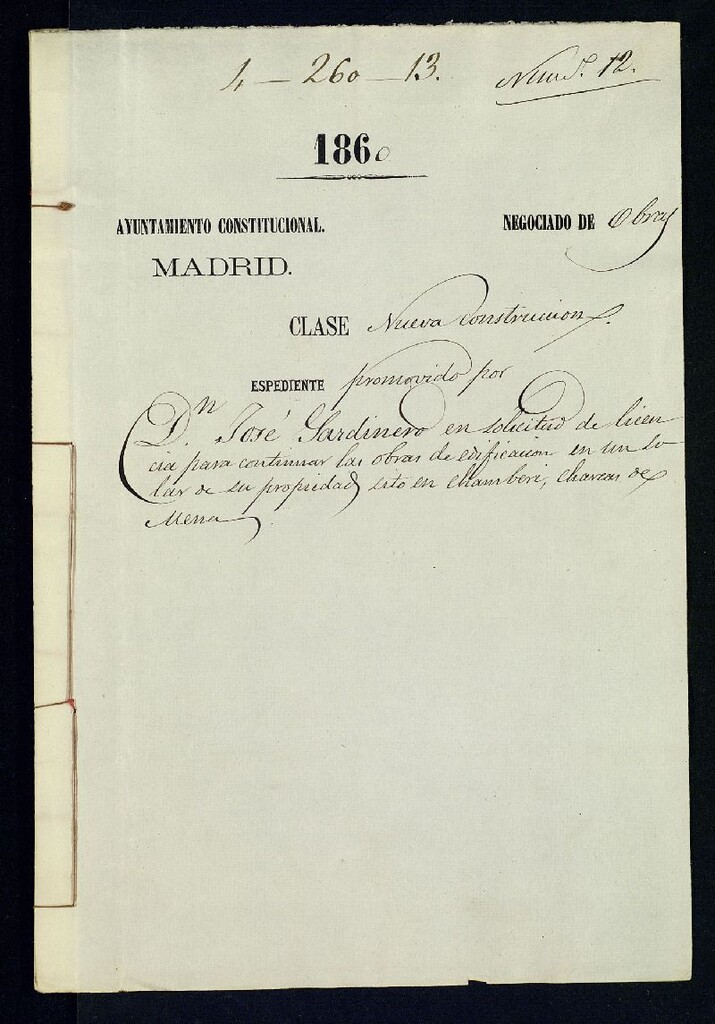 4 - 260 - 13. Num.º 12.
1860
AYUNTAMIENTO CONSTITUCIONAL. NEGOCIADO DE Obras
MADRID.
CLASE Nueva Construccion.
ESPEDIENTE promovido por
D.n José Jardinero en solicitud de licen
cia para continuar las obras de edificacion en un so
lar de su propiedad sito en Chamberi, Charcas de
Mena